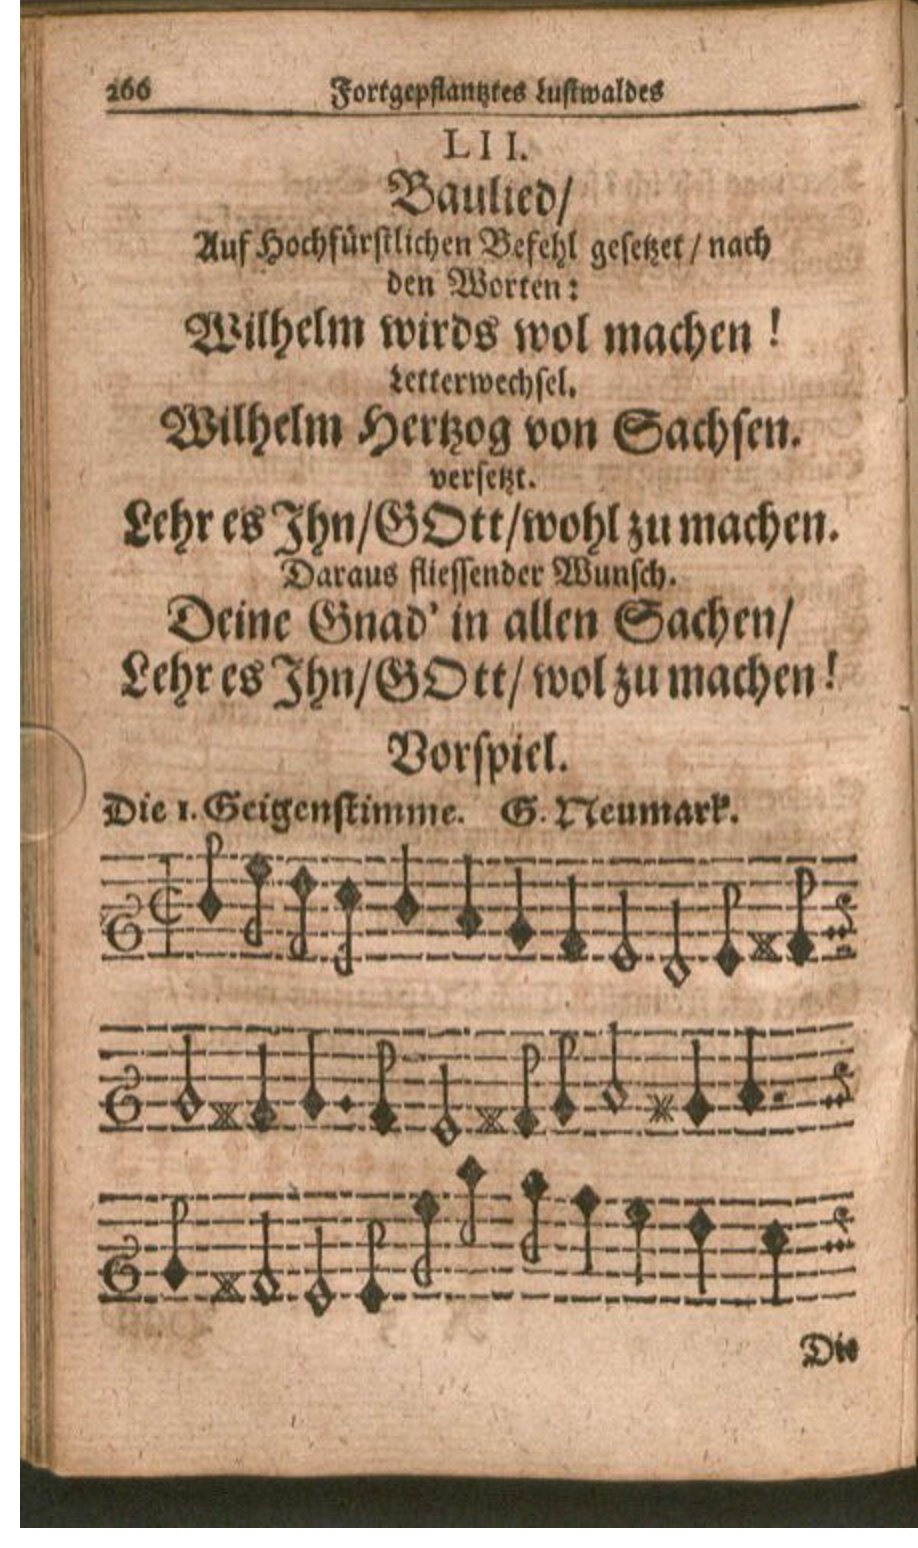 266 Fortgepflantztes Lustwaldes
LII.
Baulied/
Auf Hochfürstlichen Befehl gesetzet / nach
den Worten:
Wilhelm wirds wol machen !
Letterwechsel.
Wilhelm Hertzog von Sachsen.
versetzt.
Lehr es Ihn/GOtt/wohl zu machen.
Daraus fliessender Wunsch.
Deine Gnad' in allen Sachen/
Lehr es Ihn/GOtt/ wol zu machen!
Vorspiel.
Die 1. Geigenstimme. G. Neumark.
Die